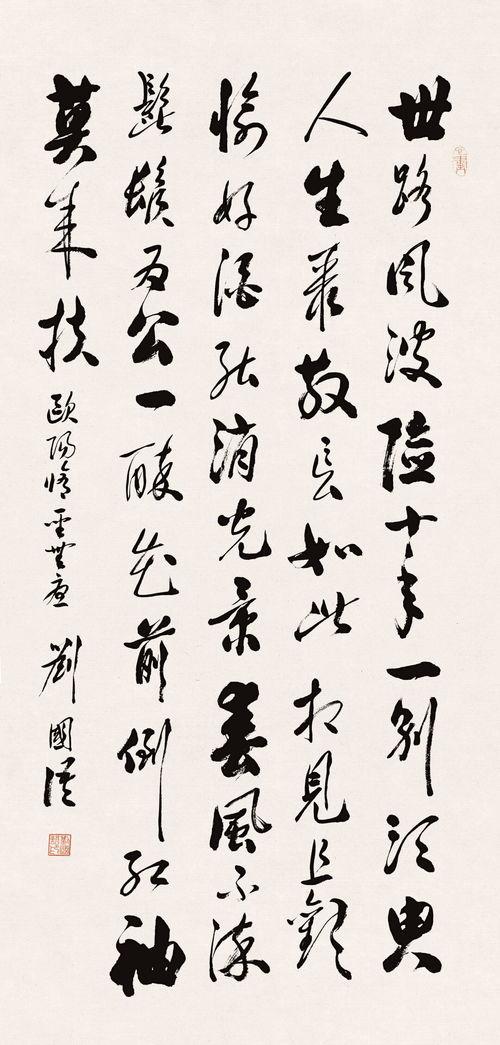 世路風波險十年一別須臾
人生聚散長如此相見且歡
愉好酒能消光景春風不染
髭鬚為公一醉花前倒紅袖
莫來扶 歐陽脩聖無憂 劉國